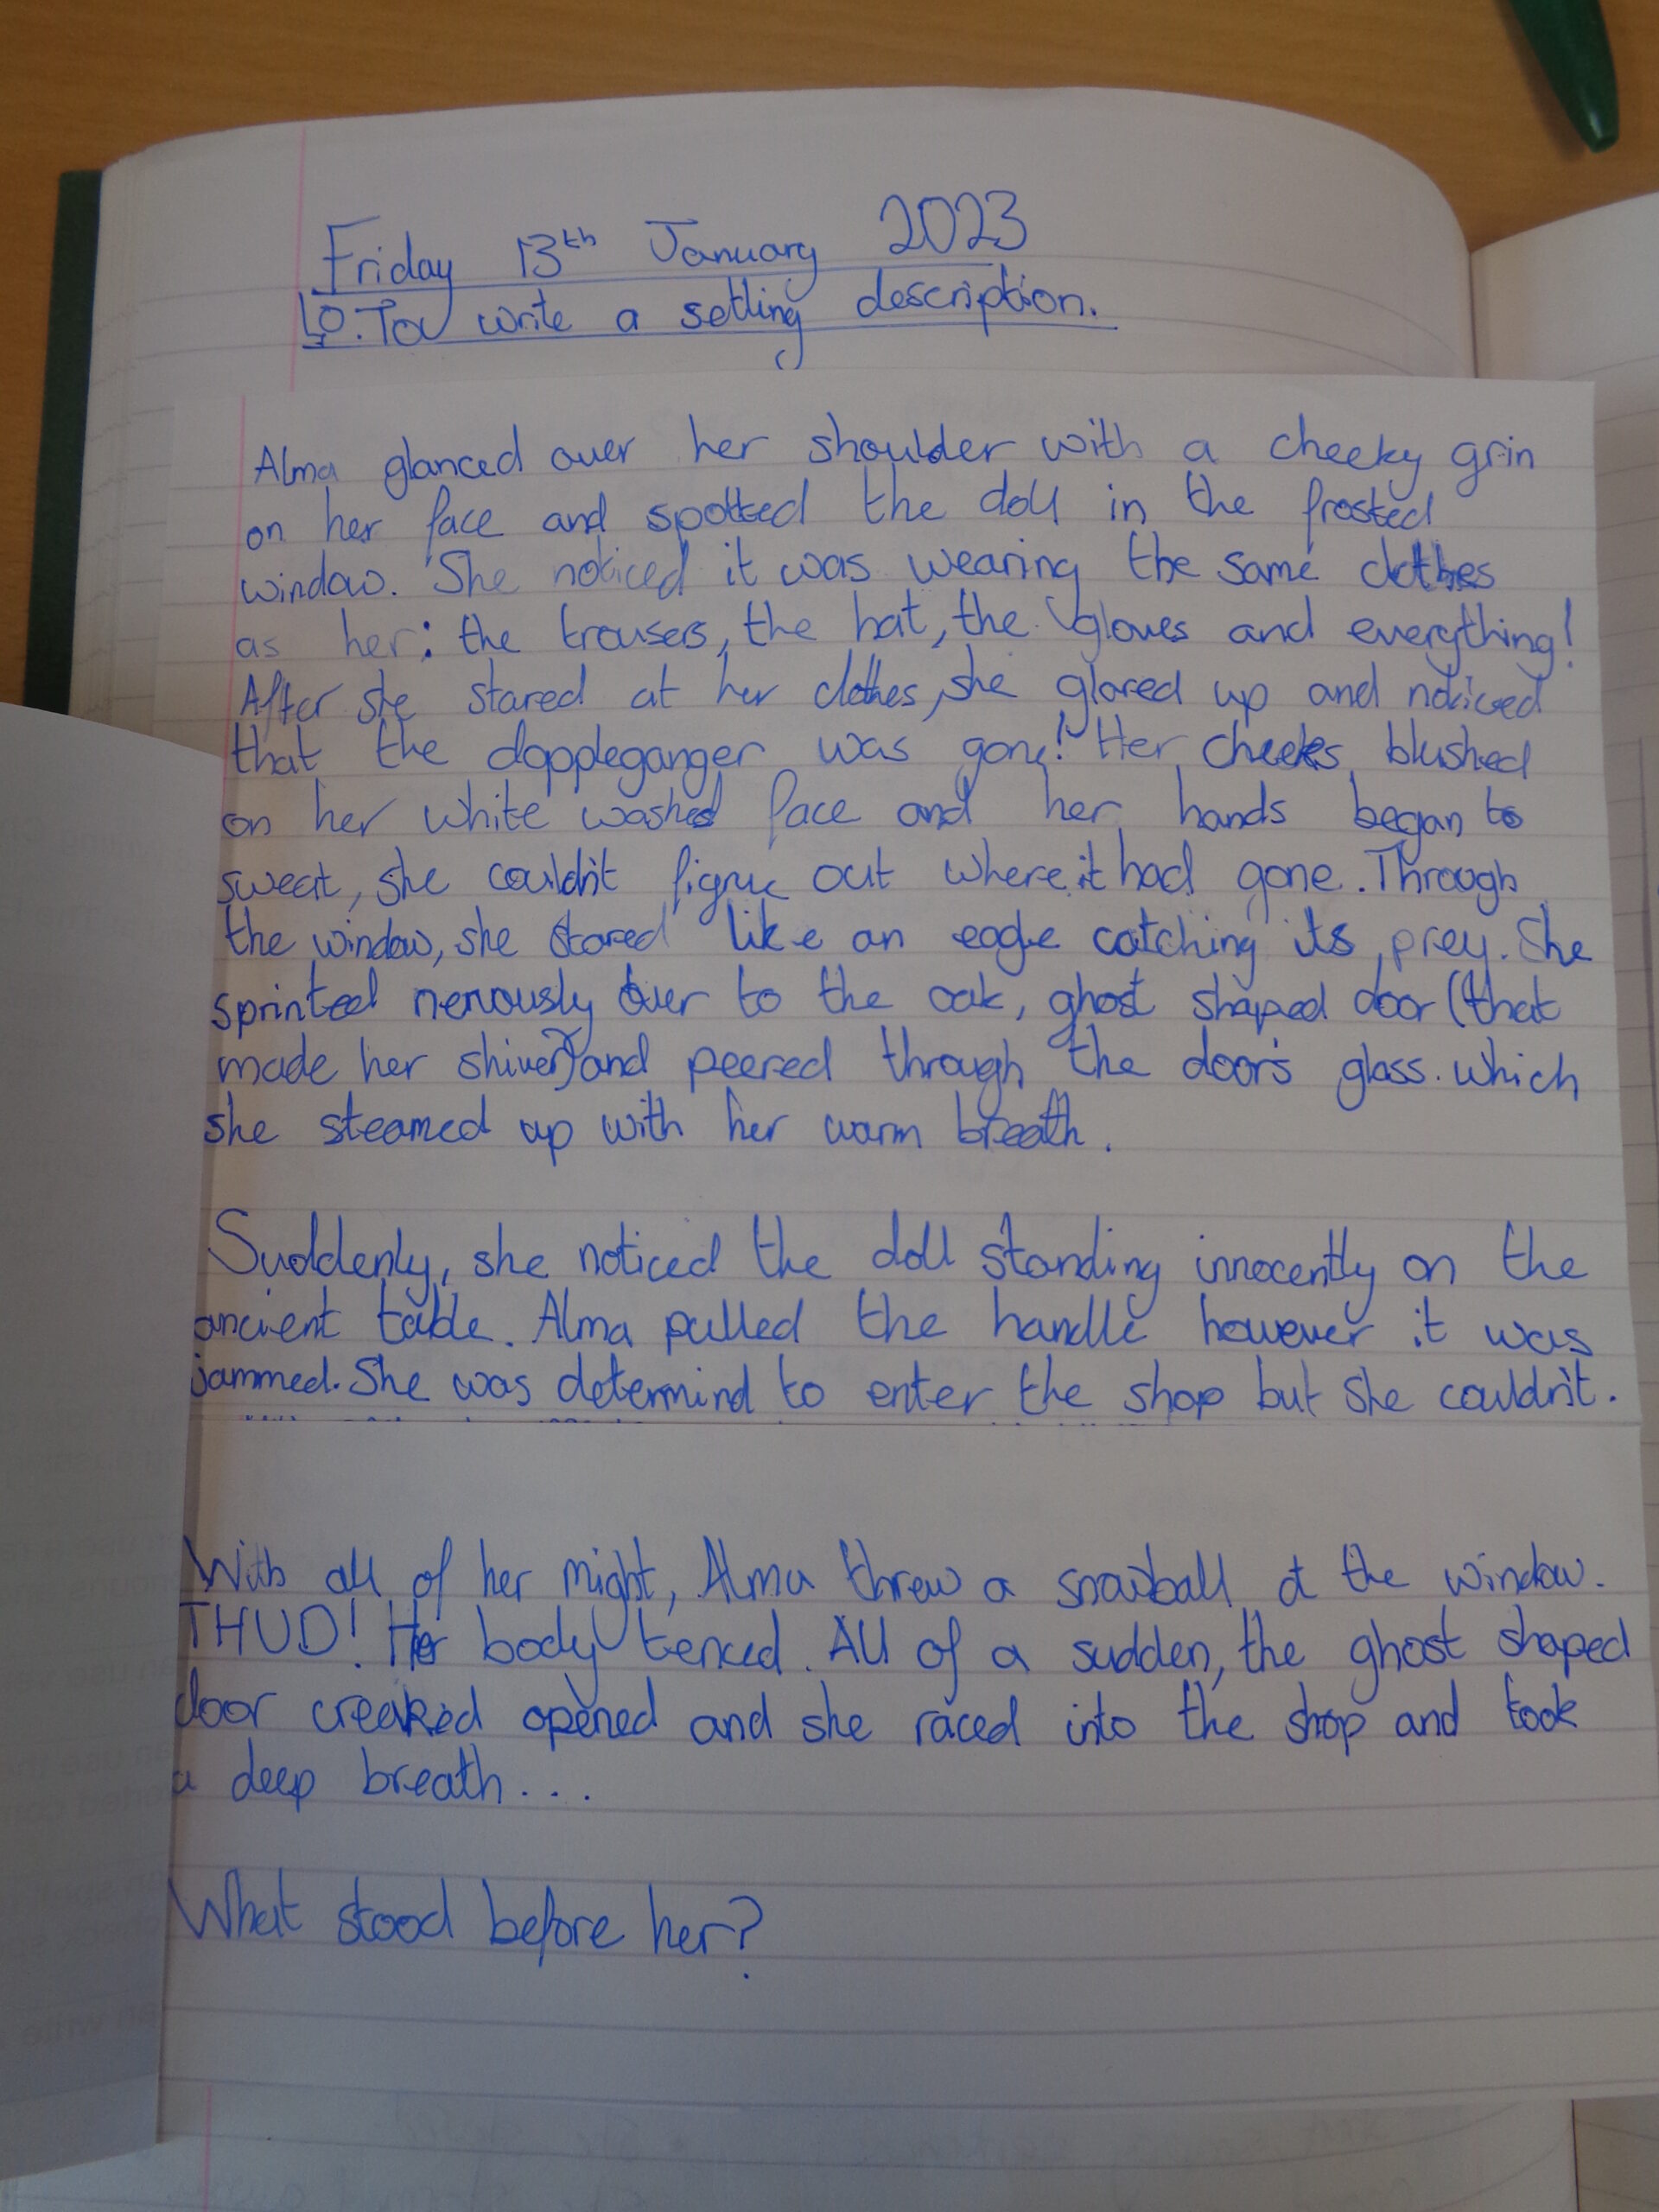 Friday 13th January 2023
LO: To write a setting description.
Alma glanced over her shoulder with a cheeky grin
on her face and spotted the doll in the frosted
window. She noticed it was wearing the same clothes
as her: the trousers, the hat, the gloves and everything!
After she stared at her clothes, she glared up and noticed
that the doppleganger was gone! Her cheeks blushed
on her white washed face and her hands began to
sweat, she couldn't figrue out where it had gone. Through
the window, she stared like an eagle catching its prey. She
sprinted nervously over to the oak, ghost shaped door (that
made her shiver) and peered through the door's glass which
she steamed up with her warm breath.
Suddenly, she noticed the doll standing innocently on the
ancient table. Alma pulled the handle however it was
jammed. She was determind to enter the shop but she couldn't.
With all of her might, Alma threw a snowball at the window.
THUD! Her body tenced. All of a sudden, the ghost shaped
door creaked opened and she raced into the shop and took
a deep breath...
What stood before her?